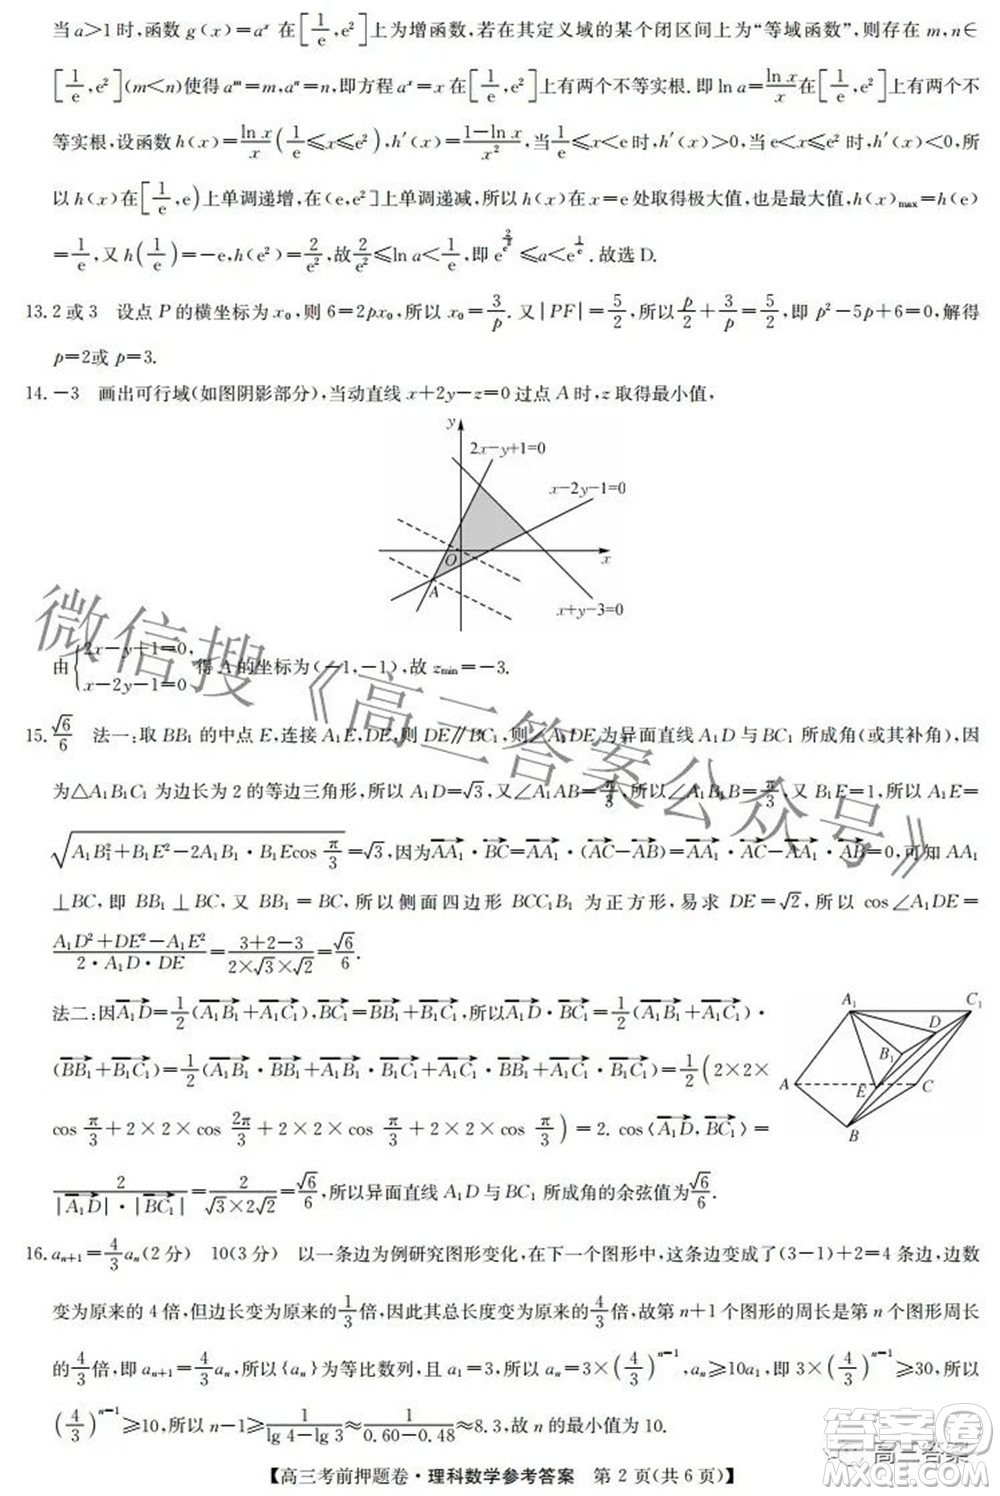 当a>1时,函数g(x)=a^x 在[1/e,e²]上为增函数,若在其定义域的某个闭区间上为“等域函数”,则存在m,n∈
[1/e,e²](m<n)使得a^m=m,a^n=n,即方程a^x=x在[1/e,e²]上有两个不等实根.即ln a=ln x/x在[1/e,e²]上有两个不
等实根,设函数h(x)=ln x/x(1/e≤x≤e²),h′(x)=(1-ln x)/x²,当1/e≤x<e时,h′(x)>0,当e<x≤e²时,h′(x)<0,所
以h(x)在[1/e,e)上单调递增,在(e,e²]上单调递减,所以h(x)在x=e处取得极大值,也是最大值,h(x)max=h(e)
=1/e,又h(1/e)=-e,h(e²)=2/e²,故2/e²≤ln a<1/e,即e^(2/e²)≤a<e^(1/e).故选D.
13.2或3 设点P的横坐标为x₀,则6=2px₀,所以x₀=3/p.又|PF|=5/2,所以p/2+3/p=5/2,即p²-5p+6=0,解得
p=2或p=3.
14.-3 画出可行域(如图阴影部分),当动直线x+2y-z=0过点A时,z取得最小值,
y
2x-y+1=0
x-2y-1=0
O
x
A
x+y-3=0
由{2x-y+1=0, x-2y-1=0,得A的坐标为(-1,-1),故zmin=-3.
15.√6/6 法一:取BB₁的中点E,连接A₁E,DE,则DE∥BC₁,则∠A₁DE为异面直线A₁D与BC₁所成角(或其补角),因
为△A₁B₁C₁为边长为2的等边三角形,所以A₁D=√3,又∠A₁AB=π/3,所以∠A₁B₁B=π/3,又B₁E=1,所以A₁E=
√(A₁B₁²+B₁E²-2A₁B₁·B₁Ecos π/3)=√3,因为AA₁·BC=AA₁·(AC-AB)=AA₁·AC-AA₁·AB=0,可知AA₁
⊥BC,即BB₁⊥BC,又BB₁=BC,所以侧面四边形BCC₁B₁为正方形,易求DE=√2,所以cos∠A₁DE=
(A₁D²+DE²-A₁E²)/(2·A₁D·DE)=(3+2-3)/(2×√3×√2)=√6/6.
法二:因A₁D=1/2(A₁B₁+A₁C₁),BC₁=BB₁+B₁C₁,所以A₁D·BC₁=1/2(A₁B₁+A₁C₁)·
(BB₁+B₁C₁)=1/2(A₁B₁·BB₁+A₁B₁·B₁C₁+A₁C₁·BB₁+A₁C₁·B₁C₁)=1/2(2×2×
cos π/3+2×2×cos 2π/3+2×2×cos π/3)=2.cos⟨A₁D,BC₁⟩=
2/(|A₁D|·|BC₁|)=2/(√3×2√2)=√6/6,所以异面直线A₁D与BC₁所成角的余弦值为√6/6.
A₁
C₁
D
B₁
A
E
C
B
16.aₙ₊₁=4/3aₙ(2分) 10(3分) 以一条边为例研究图形变化,在下一个图形中,这条边变成了(3-1)+2=4条边,边数
变为原来的4倍,但边长变为原来的1/3倍,因此其总长度变为原来的4/3倍,故第n+1个图形的周长是第n个图形周长
的4/3倍,即aₙ₊₁=4/3aₙ,所以{aₙ}为等比数列,且a₁=3,所以aₙ=3×(4/3)^(n-1),aₙ≥10a₁,即3×(4/3)^(n-1)≥30,所以
(4/3)^(n-1)≥10,所以n-1≥1/(lg 4-lg 3)≈1/(0.60-0.48)≈8.3,故n的最小值为10.
【高三考前押题卷·理科数学参考答案 第2页(共6页)】
微信搜《高三答案公众号》
高三答案
答案圈
MXQE.COM